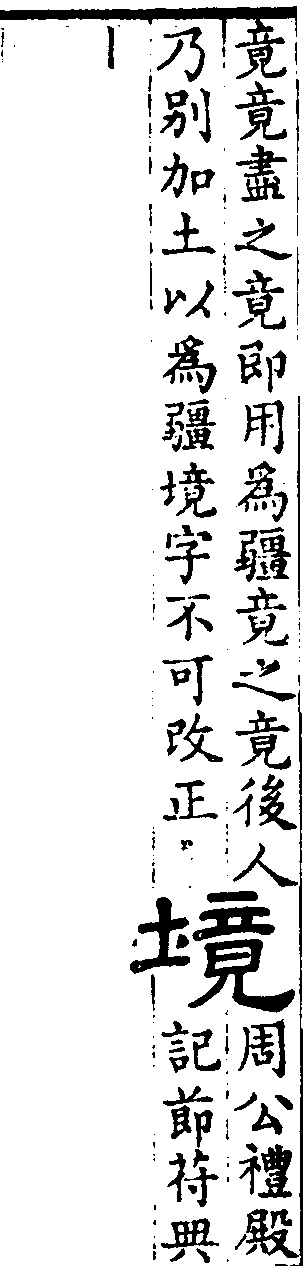 竟竟盡之竟即用為疆竟之竟後人
乃別加土以為疆境字不可改正
境
周公禮殿
記節苻典